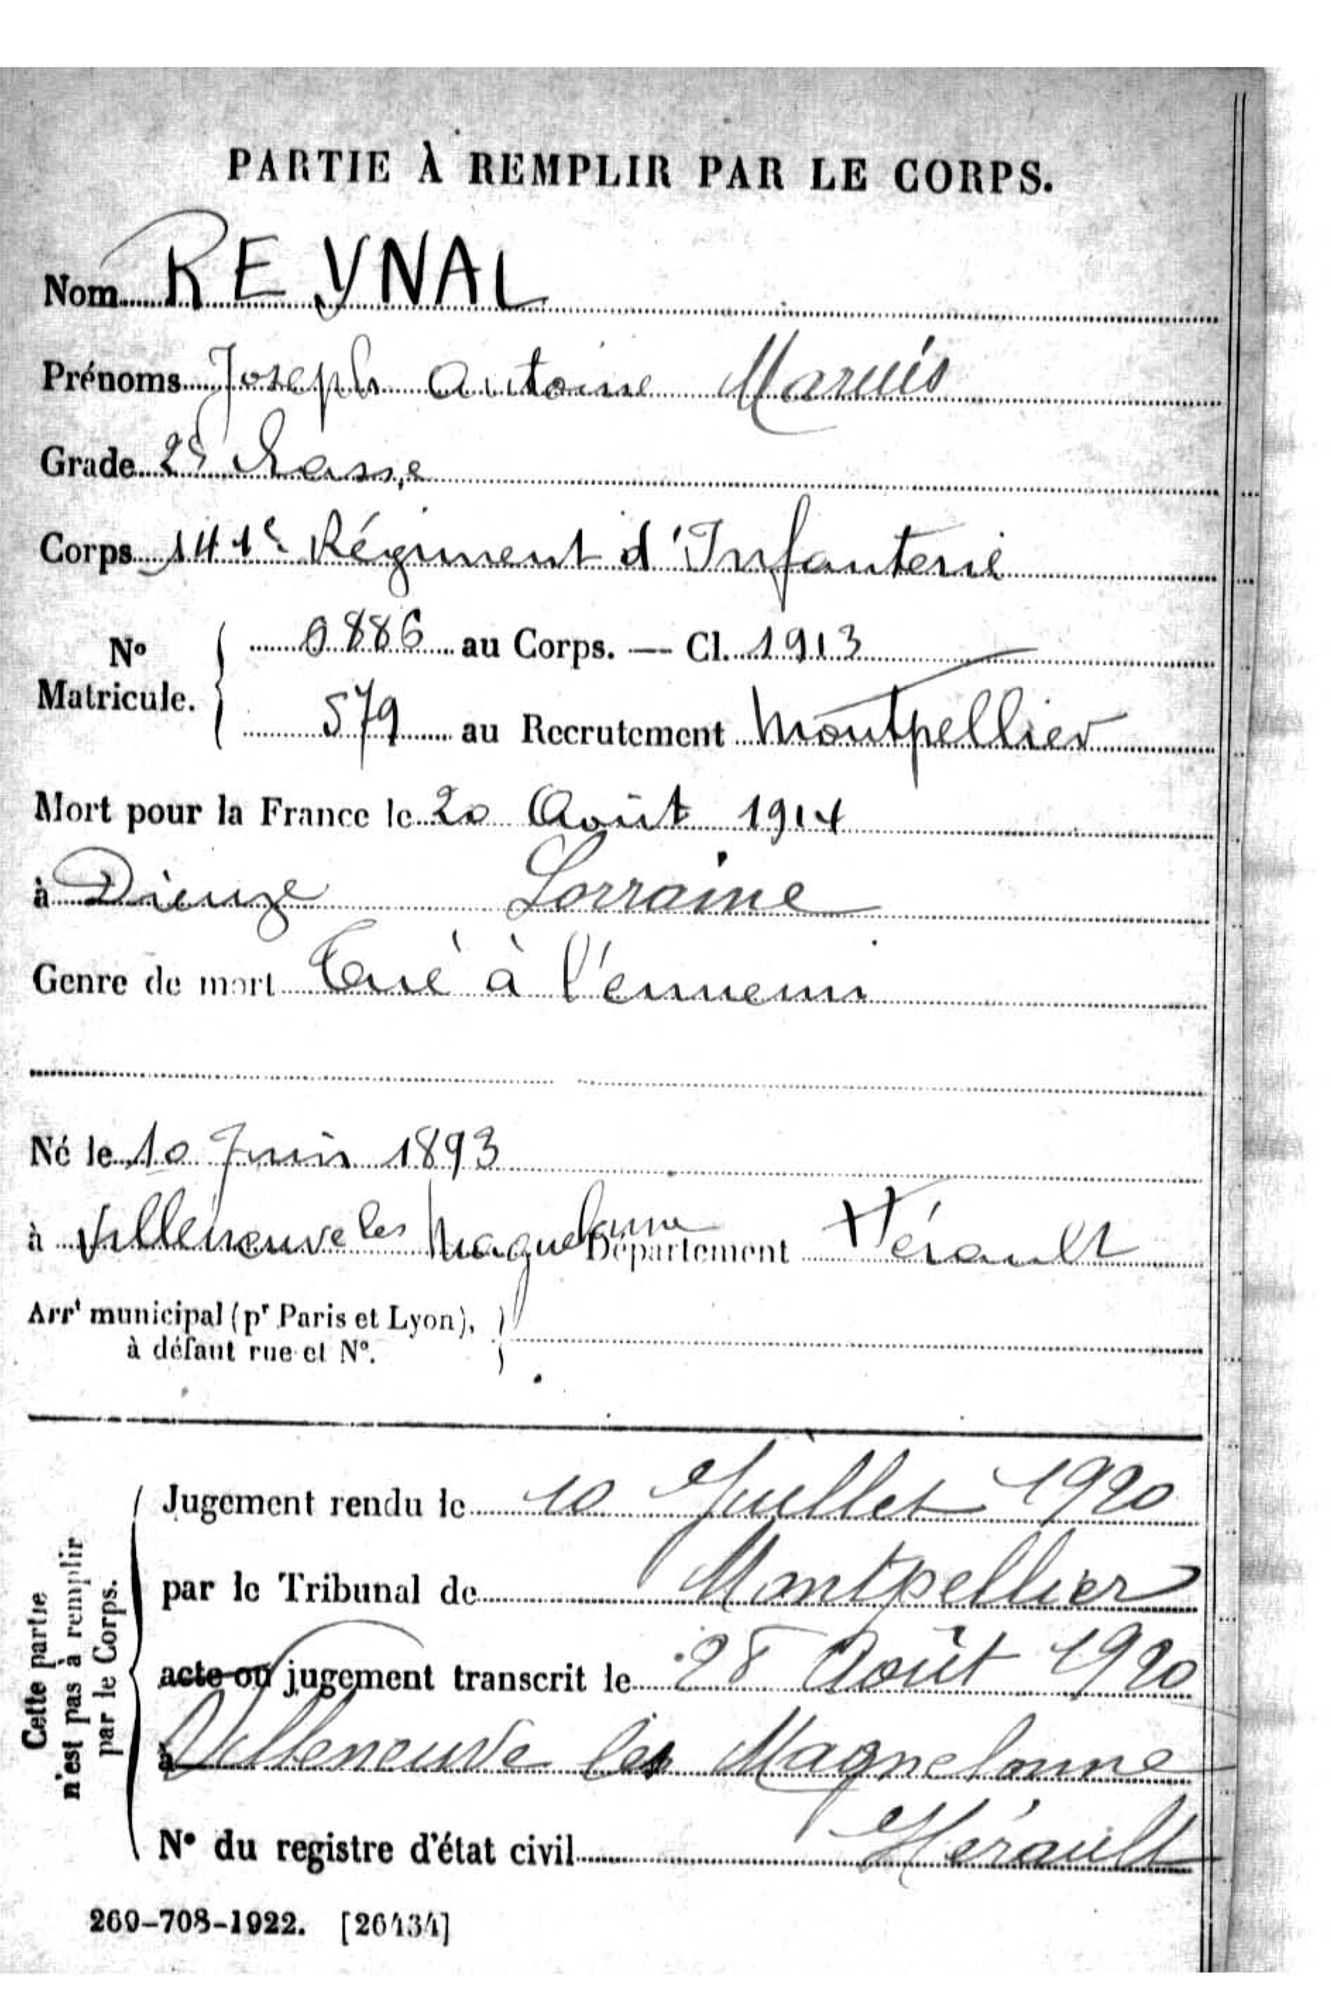 PARTIE À REMPLIR PAR LE CORPS.
Nom REYNAL
Prénoms Joseph Antoine Marius
Grade 2e Classe
Corps 141e Régiment d'Infanterie
No Matricule. 0886 au Corps. — Cl. 1913
579 au Recrutement Montpellier
Mort pour la France le 20 Août 1914
à Dieuze Lorraine
Genre de mort Tué à l'ennemi
Né le 10 Juin 1893
à Villeneuve les Maguelonne Département Hérault
Arrt municipal (pr Paris et Lyon),
à défaut rue et No.
Cette partie
n'est pas à remplir
par le Corps.
Jugement rendu le 10 Juillet 1920
par le Tribunal de Montpellier
acte ou jugement transcrit le 28 Août 1920
à Villeneuve les Maguelonne
Hérault
No du registre d'état civil
260-708-1922. [26434]